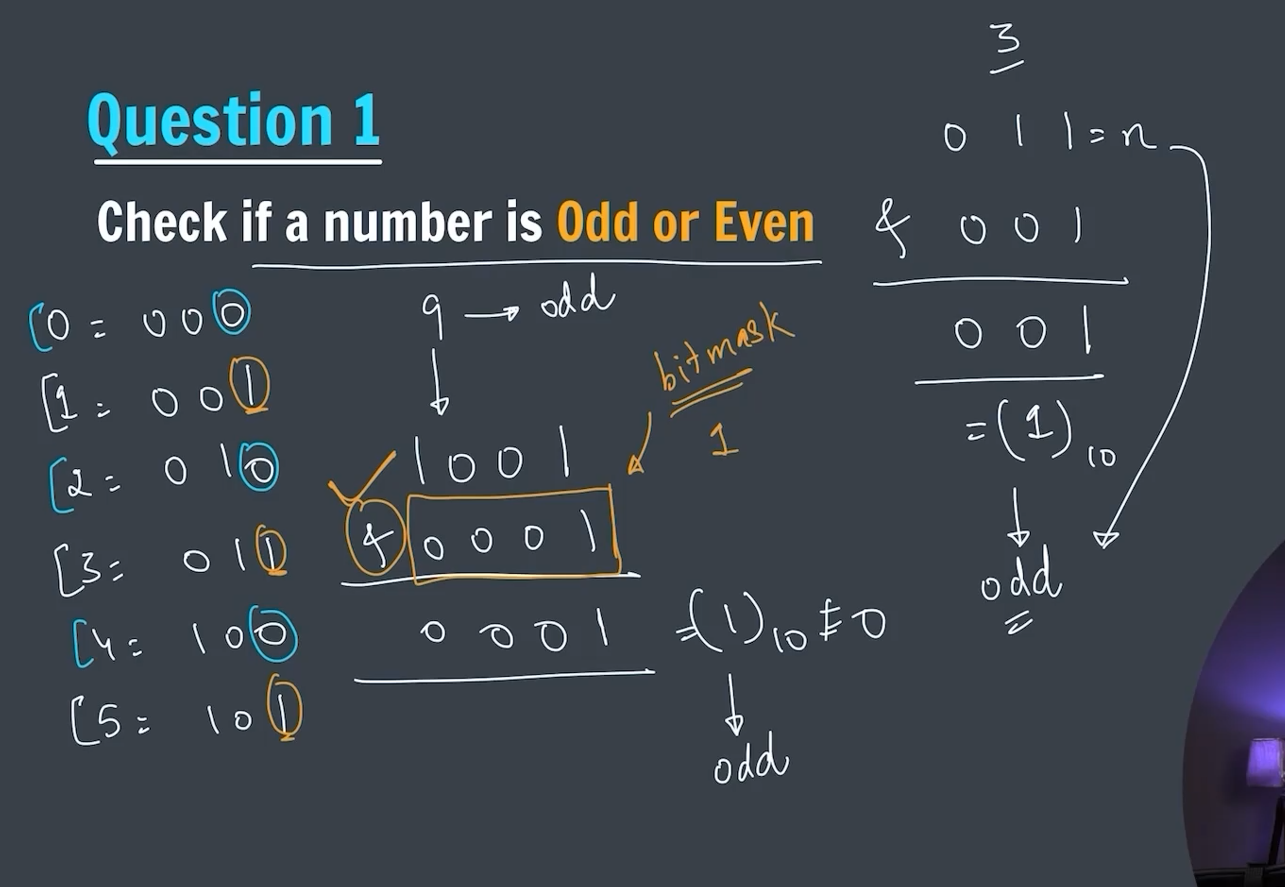 Question 1
Check if a number is Odd or Even
0 = 000
1 = 001
2 = 010
3 = 011
4 = 100
5 = 101
9 → odd
↓
1001
& 0001
0001 =(1)10 ≠ 0
↓
odd
bitmask
1
3
011 = n
& 001
001
= (1)10
↓
odd